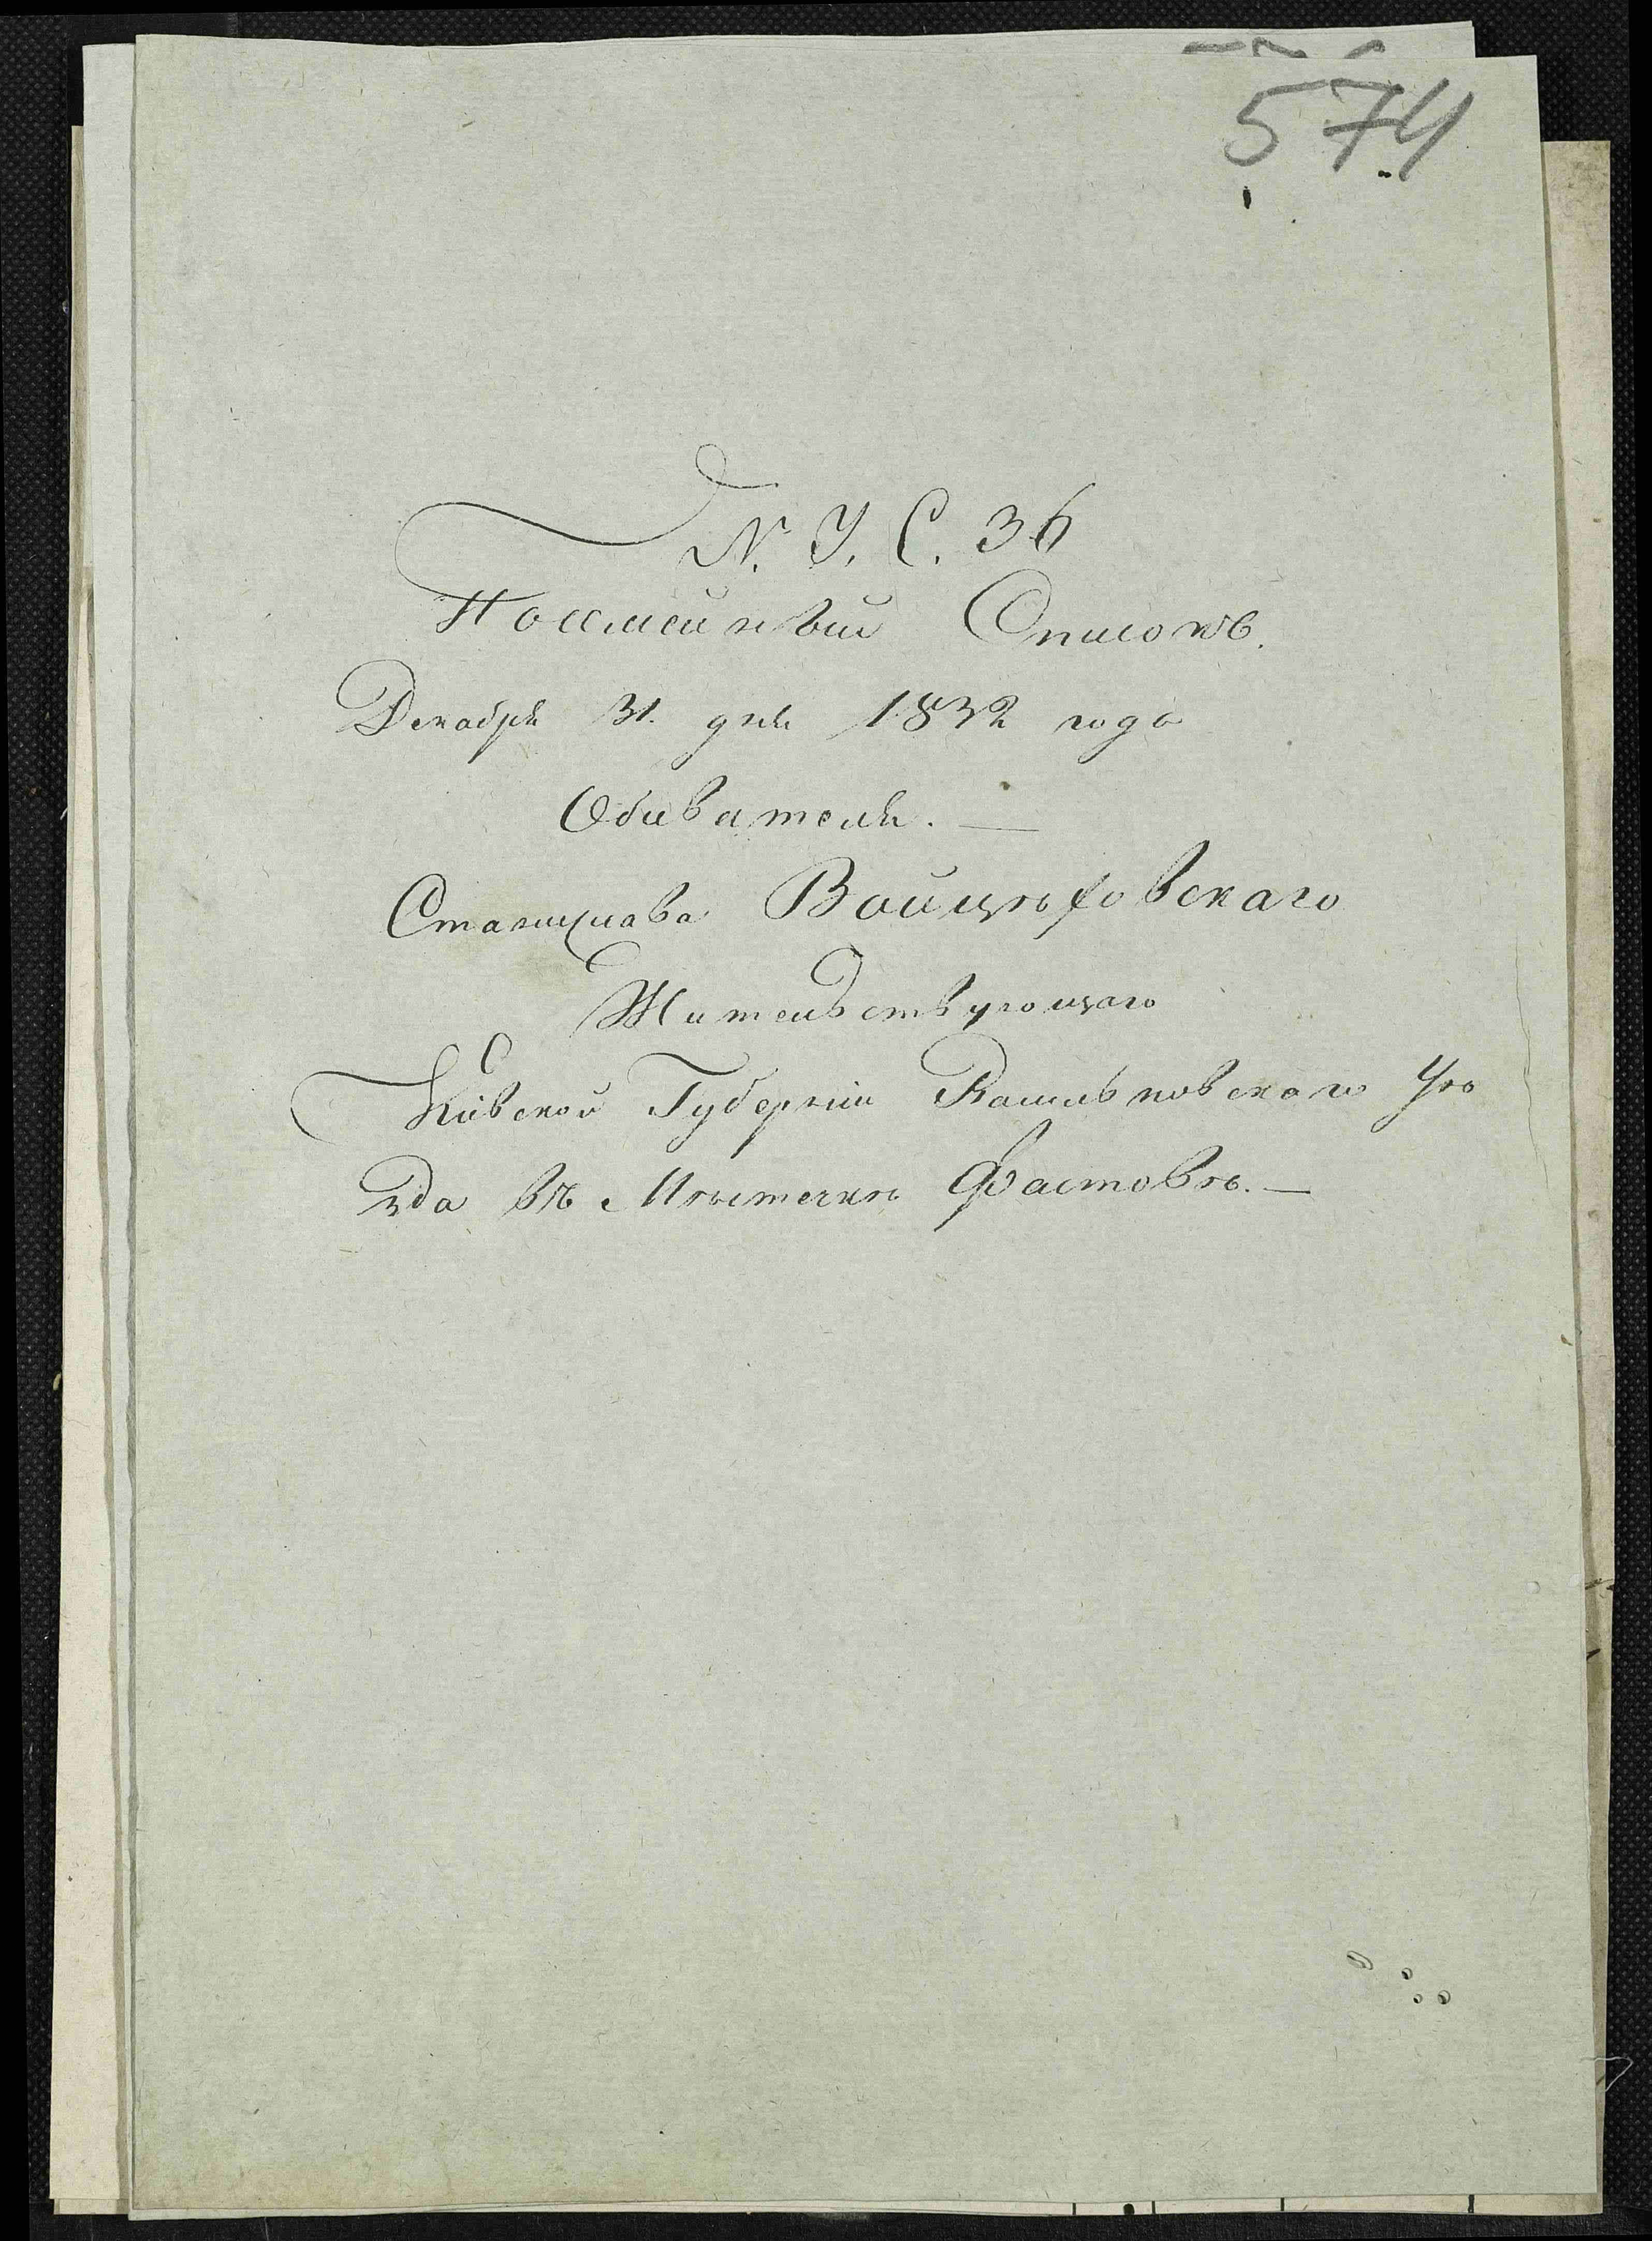 574
N. У. С. 36
Посемейный Списокъ.
Декабря 31. дня 1832 года
Обивателя. —
Станислава Войцѣховскаго
Жительствующаго
Кіевской Губерніи Васильковскаго Уѣ
зда въ Мѣстечкѣ Фастовѣ. —